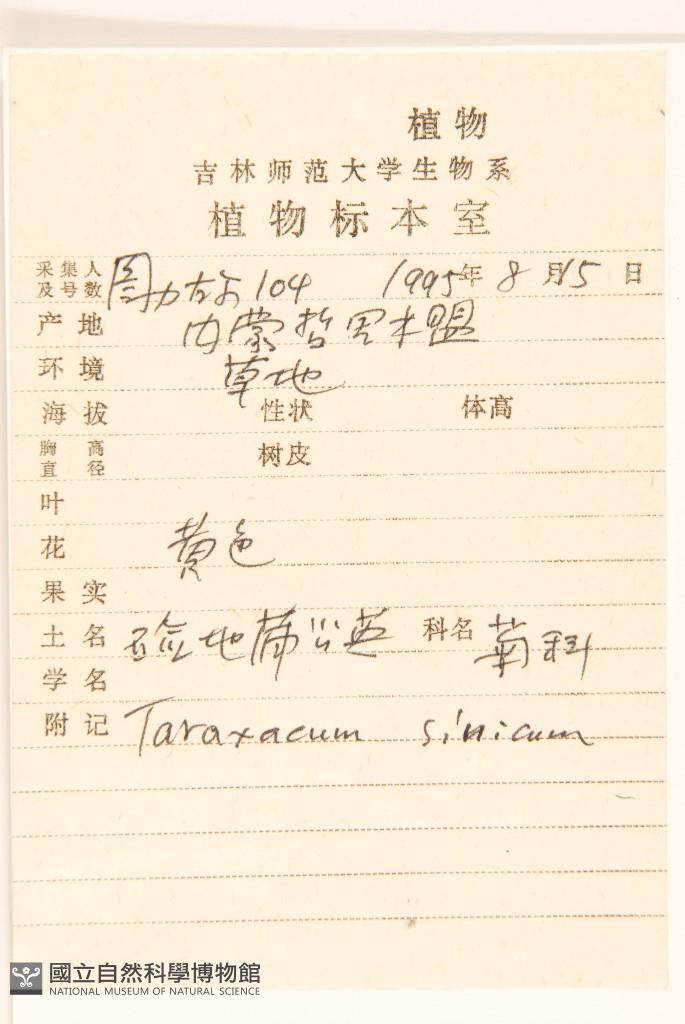 植物
吉林师范大学生物系
植物标本室
采集人及号数 104 1995年8月15日
产地 内蒙哲里木盟
环境 草地
海拔 性状 体高
胸高直径 树皮
叶
花 黄色
果实
土名 硷地蒲公英 科名 菊科
学名
附记 Taraxacum sinicum
國立自然科學博物館
NATIONAL MUSEUM OF NATURAL SCIENCE